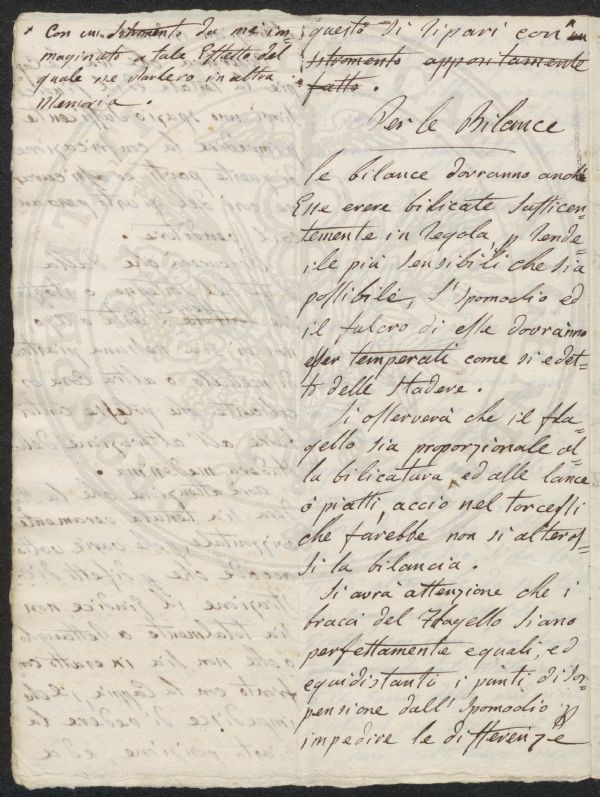 * Con un Istromento da me im=
maginato a tale Effetto del
quale ne parlero in altra
Memoria.
questo si ripari con * un
istromento appositamente
fatto.
Per le Bilance
le bilance dovranno anche
Esse essere bilicate sufficen=
temente in regola, p rende=
rle più sensibili che sia
possibile, l'Ipomodio ed
il fulcro di esse dovranno
esser temperati come si è det=
to delle stadere.
Si osserverà che il fla=
gello sia proporzionale al=
la bilicatura, ed alle lance
o piatti, accio nel torcersi
che farebbe non si alteras=
si la bilancia.
Si avrà attenzione che i
bracci del Flagello siano
perfettamente equali, ed
equidistanti i punti di sos=
pensione dall'Ipomodio p
impedire le differenze